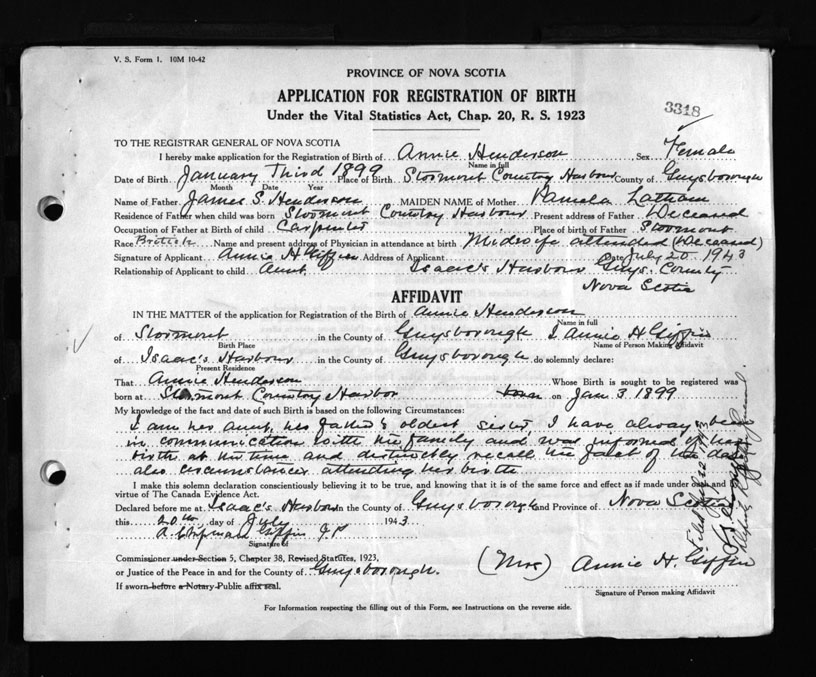 V. S. Form 1. 10M 10-42
PROVINCE OF NOVA SCOTIA
APPLICATION FOR REGISTRATION OF BIRTH
3318
Under the Vital Statistics Act, Chap. 20, R. S. 1923
TO THE REGISTRAR GENERAL OF NOVA SCOTIA
I hereby make application for the Registration of Birth of Annie Henderson, Sex Female
Name in full
Date of Birth January Third 1899 Place of Birth Stormont Country Harbour County of Guysborough
Month Date Year
Name of Father James S. Henderson MAIDEN NAME of Mother Pamela Latham
Residence of Father when child was born Stormont Country Harbour Present address of Father Deceased
Occupation of Father at Birth of child Carpenter Place of birth of Father Stormont
Race British Name and present address of Physician in attendance at birth Midwife attended (Deceased)
Signature of Applicant Annie H Giffin Address of Applicant Date July 20-1943
Relationship of Applicant to child Aunt. Isaac's Harbour Guys. County
Nova Scotia
AFFIDAVIT
IN THE MATTER of the application for Registration of the Birth of Annie Henderson
Name in full
of Stormont in the County of Guysborough I, Annie H Giffin
Birth Place Name of Person Making Affidavit
of Isaac's Harbour in the County of Guysborough do solemnly declare:
Present Residence
That Annie Henderson Whose Birth is sought to be registered was
born at Stormont Country Harbor born on Jan 3 1899
My knowledge of the fact and date of such Birth is based on the following Circumstances:
I am her aunt, her father's oldest sister, I have always been
in communication with the family and was informed of her
birth at the time and distinctly recall the fact of the date
also circumstances attending her birth
I make this solemn declaration conscientiously believing it to be true, and knowing that it is of the same force and effect as if made under oath and
virtue of The Canada Evidence Act.
Declared before me at Isaac's Harbour in the County of Guysborough and Province of Nova Scotia
this 20th day of July 1943
A. Chipman Giffin J.P
Signature of
Commissioner under Section 5, Chapter 38, Revised Statutes, 1923,
or Justice of the Peace in and for the County of Guysborough.
If sworn before a Notary Public affix seal.
(Mrs) Annie H. Giffin
Signature of Person making Affidavit
For Information respecting the filling out of this Form, see Instructions on the reverse side.
Filed July 22 1943